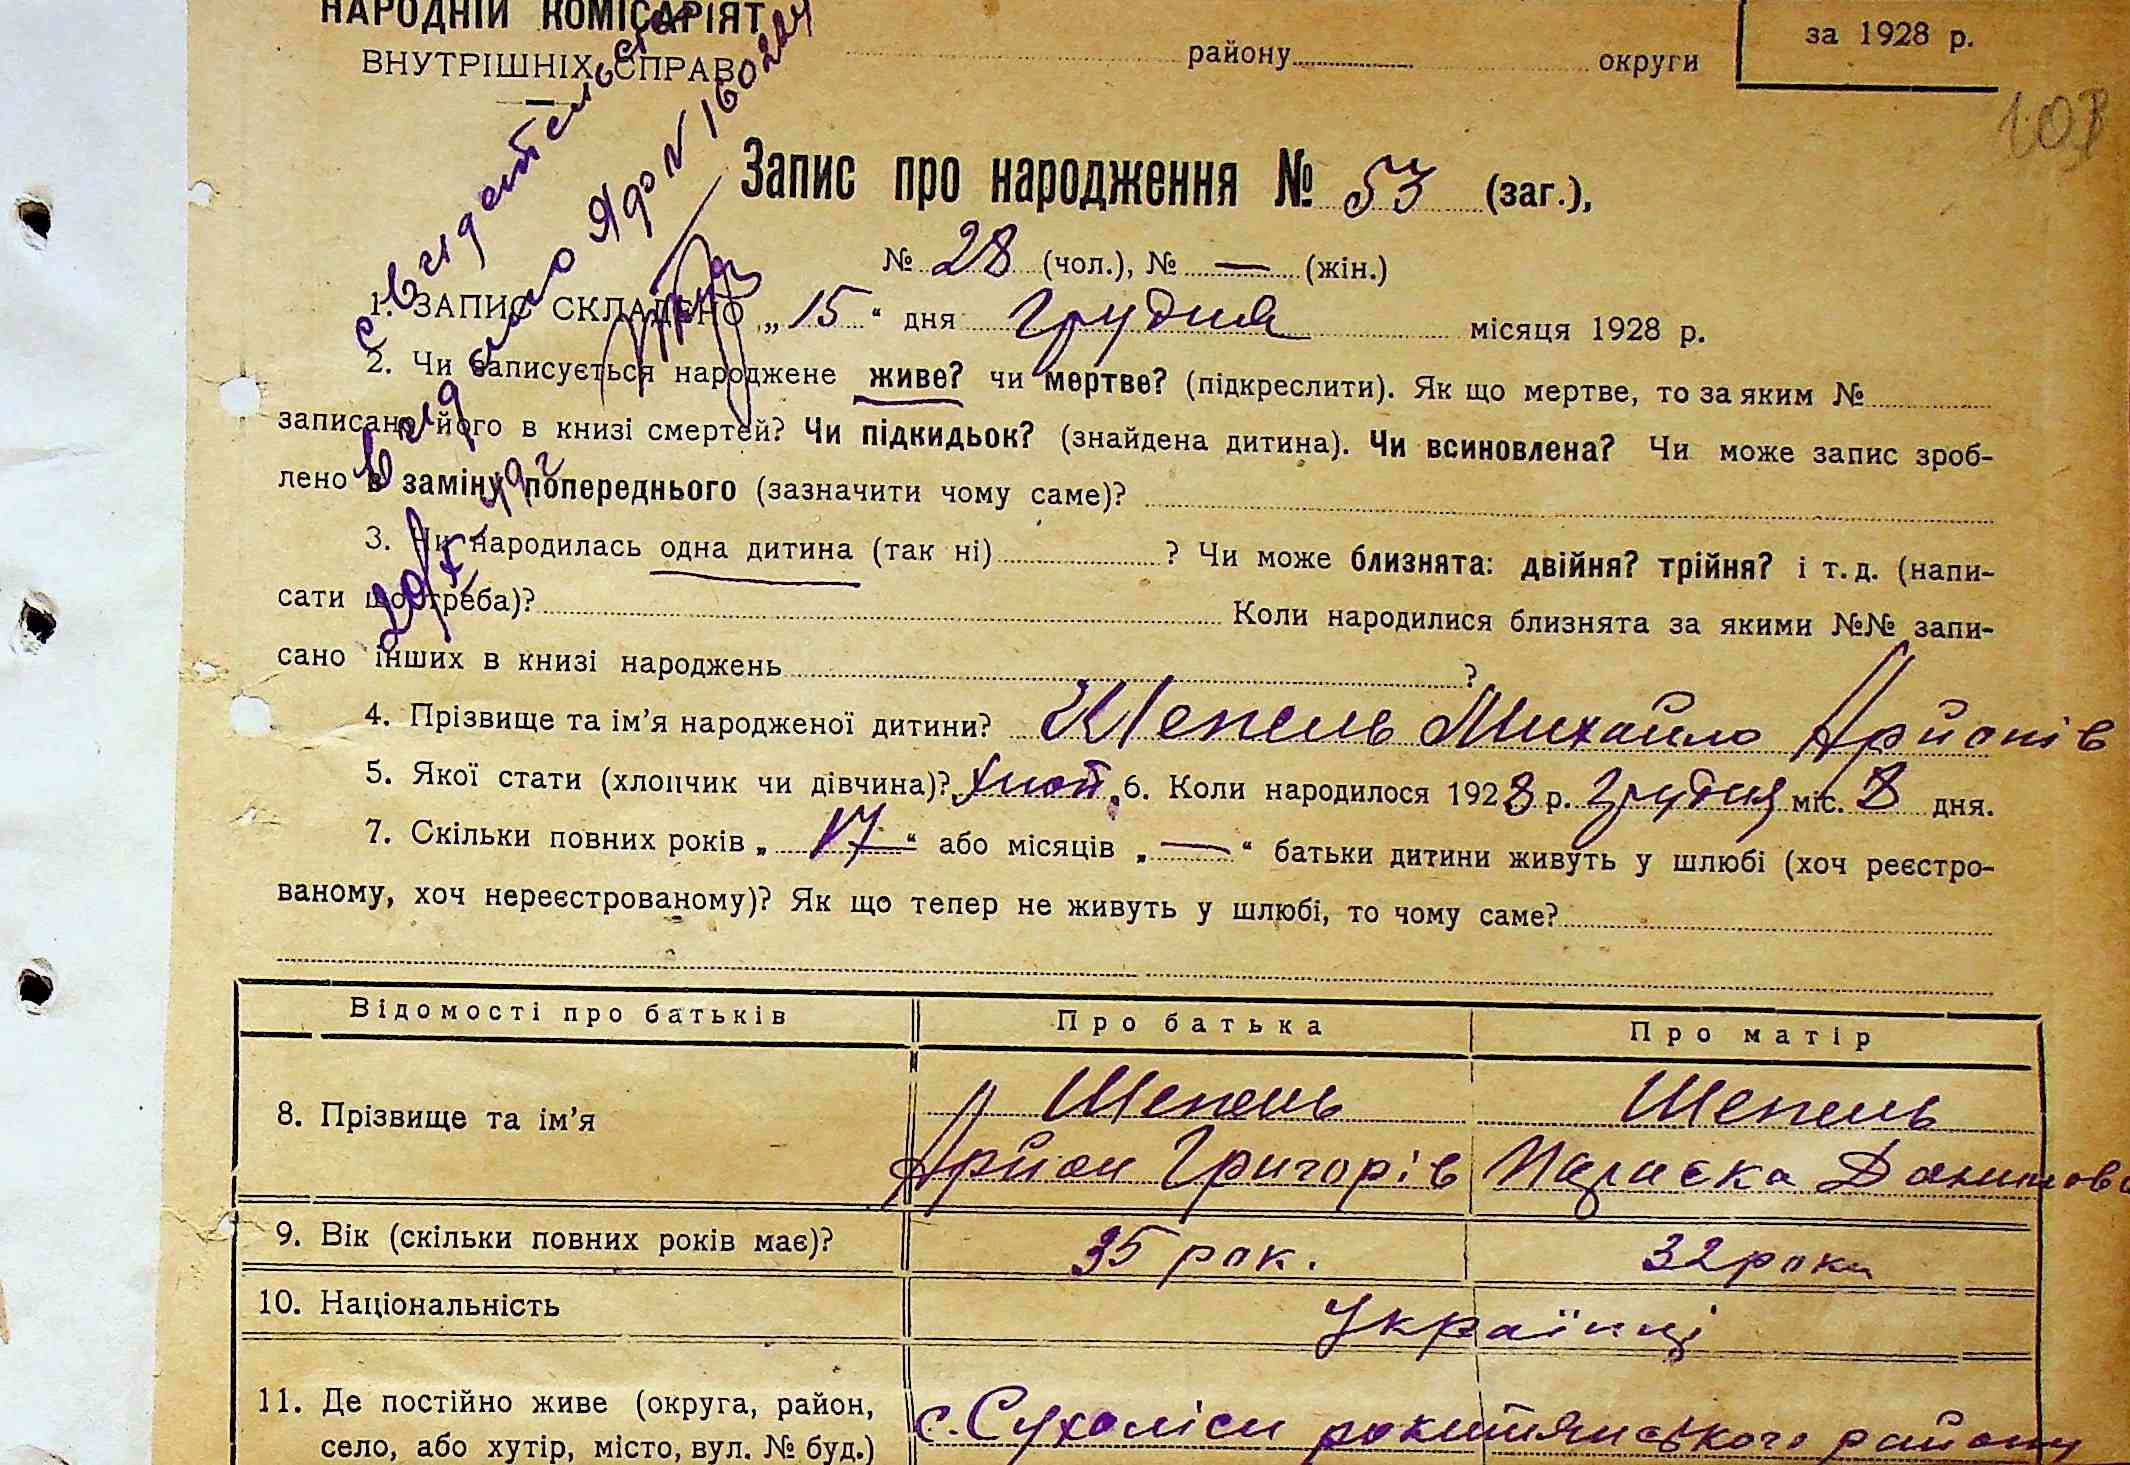 НАРОДНІЙ КОМІСАРІЯТ
ВНУТРІШНІХ СПРАВ
району округи
за 1928 р.
Запис про народження № 53 (заг.),
№ 28 (чол.), № — (жін.)
1. ЗАПИС СКЛАДЕНО „15“ дня Грудня місяця 1928 р.
2. Чи записується народжене живе? чи мертве? (підкреслити). Як що мертве, то за яким №
записано його в книзі смертей? Чи підкидьок? (знайдена дитина). Чи всиновлена? Чи може запис зроб-
лено в заміну попереднього (зазначити чому саме)?
3. Чи народилась одна дитина (так ні) ? Чи може близнята: двійня? трійня? і т. д. (напи-
сати що треба)? Коли народилися близнята за якими №№ запи-
сано інших в книзі народжень ?
4. Прізвище та ім’я народженої дитини? Шепель Михайло Арйонів
5. Якої стати (хлопчик чи дівчина)? 6. Коли народилося 1928 р. Грудня міс. 8 дня.
7. Скільки повних років „17“ або місяців „—“ батьки дитини живуть у шлюбі (хоч реєстро-
ваному, хоч нереєстрованому)? Як що тепер не живуть у шлюбі, то чому саме?
Відомості про батьків Про батька Про матір
8. Прізвище та ім’я Шепель Шепель
Арйон Григорів Параска Данилова
9. Вік (скільки повних років має)? 35 рок. 32 роки
10. Національність Українці
11. Де постійно живе (округа, район,
село, або хутір, місто, вул. № буд.) с. Сухоліси рокитянського району
свидетельство
видано Ядо № 160224